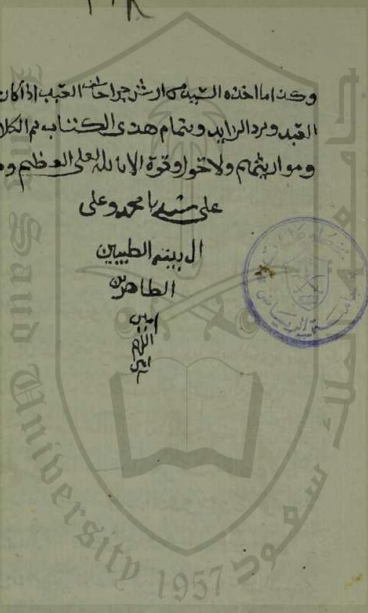 وكذا ما اخذه السيد من ارش جراحات العبد اذا كان
العبد ويرد الزايد وبتمام هذى الكتاب تم الكلا
ومواريثهم ولا حول وقوة الا بالله العلى العظيم و
على سيدنا محمد وعلى
ال بيته الطيبين
الطاهرين
امين
اللهم
امين
جامعة الملك سعود
King Saud University
1957